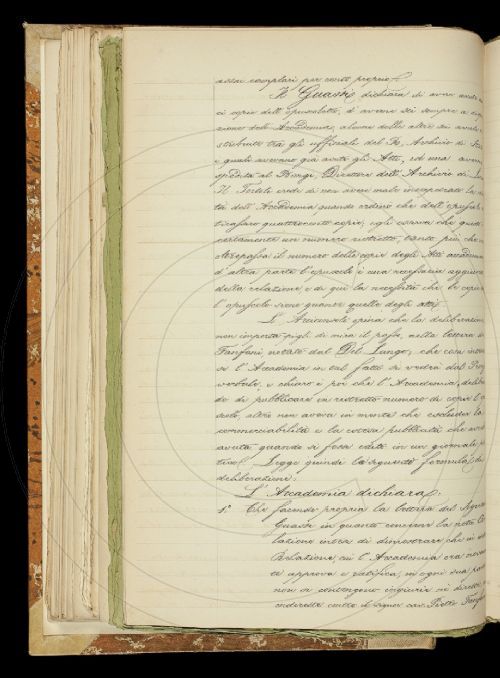 assai esemplari per conto proprio.
Il Guasti dichiara di aver avute
ci copie dell'opuscoletto, d'averne sei sempre a
zione dell'Accademia, alcune delle altre sei averle
stribuite tra gli uffiziali del R. Archivio di
e quali avevano già avuto gli Atti, ed una averne
spedita al Bongi, Direttore dell'Archivio di
Il Tortoli crede di non avere male interpretato la
tà dell'Accademia quando ordinò che dell'opuscolo
tirassero quattrocento copie; egli osserva che questo
certamente un numero ristretto, tanto più che
oltrepassa il numero delle copie degli Atti
d'altra parte l'opuscolo è una necessaria aggiunta
della relazione, e di qui la necessità che le copie
l'opuscolo siene quante quelle degli atti.
L'Arciconsolo opina che la deliberazione
non importa pigli di mira il passo, nella lettera
Fanfani notato dal Del Lungo; che cosa
se l'Accademia in tal fatto si vedrà dal
verbale, e chiaro è poi che l'Accademia,
do di pubblicare un ristretto numero di copie
scolo, altro non aveva in mente che escluder la
commerciabilità e la stessa pubblicità che
avuta quando si fosse edito in un giornale
Legge quindi la seguente formula di
deliberazione:
L'Accademia dichiara:
1.° Che facendo propria la lettera del Signor
Guasti in quanto concerne la nota
lazione intesa di dimostrare, che in
Relazione, cui l'Accademia
te approva e ratifica, in ogni sua
non si contengono ingiurie nè dirette
indirette contro il signor cav. Pietro